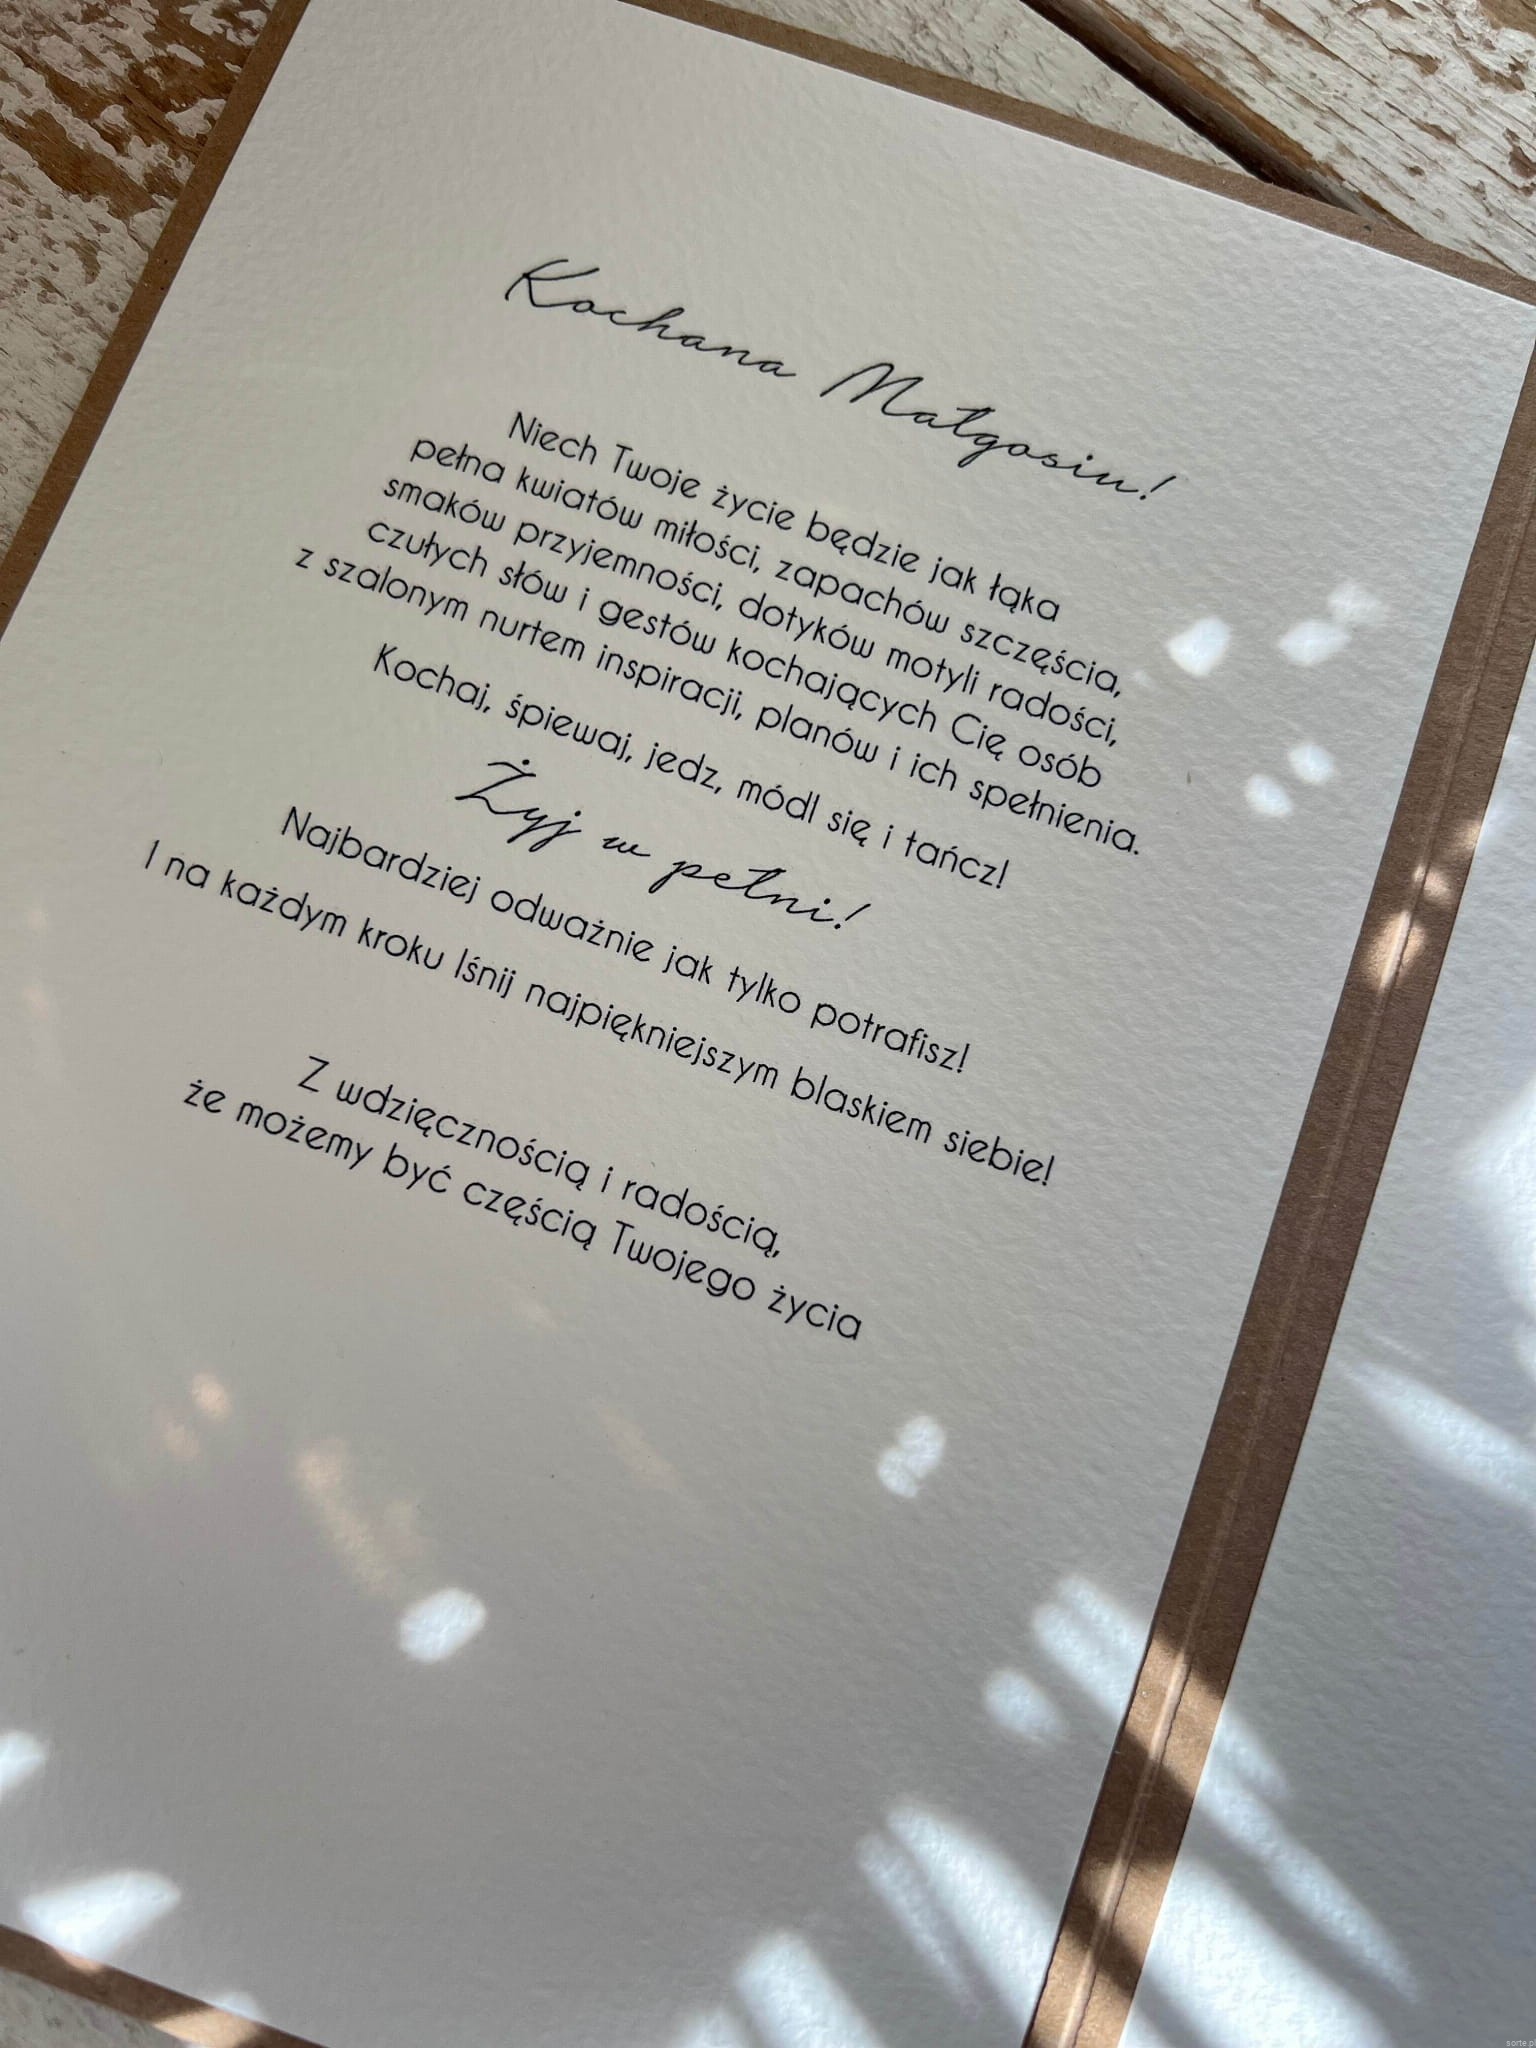 Kochana Małgosiu!
Niech Twoje życie będzie jak łąka
pełna kwiatów miłości, zapachów szczęścia,
smaków przyjemności, dotyków motyli radości,
czułych słów i gestów kochających Cię osób
z szalonym nurtem inspiracji, planów i ich spełnienia.
Kochaj, śpiewaj, jedz, módl się i tańcz!
Żyj w pełni!
Najbardziej odważnie jak tylko potrafisz!
I na każdym kroku lśnij najpiękniejszym blaskiem siebie!
Z wdzięcznością i radością,
że możemy być częścią Twojego życia